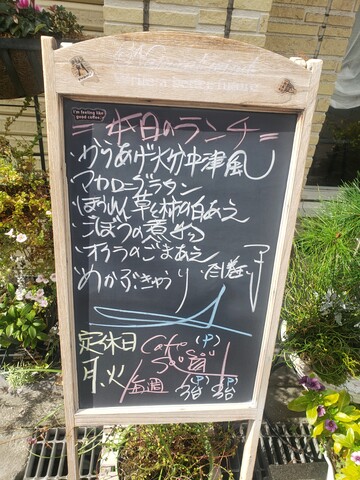 I'm feeling like
good coffee.
= 本日のランチ =
・からあげ大分中津風
マカロニグラタン
ほうれん草と柿の白あえ
・ごぼうの煮もの
・オクラのごまあえ
・めかぶきゅうり
定休日
月、火
Cafe (P)
毎週
(P) (P)